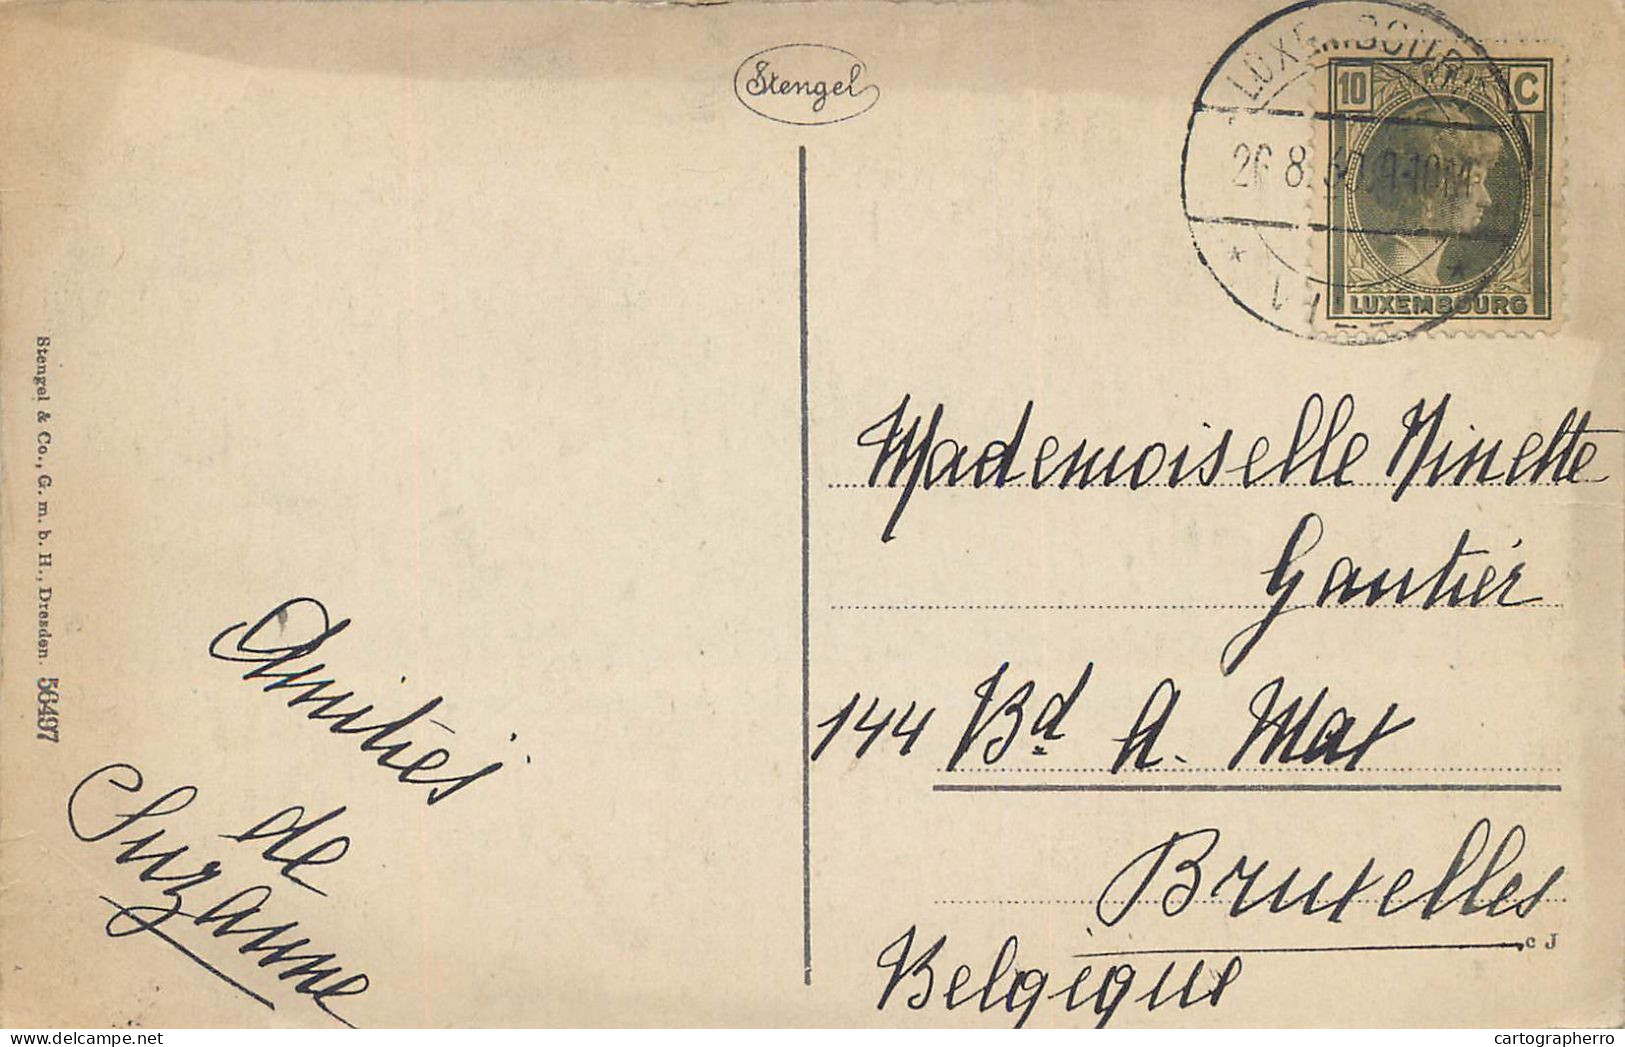 Stengel
LUXEMBOURG
26.8.30.9-10M
10 C
LUXEMBOURG
Stengel & Co., G. m. b. H., Dresden. 56497
Amitiés
de
Suzanne
Mademoiselle Ninette
Gautier
144 Bd A. Max
Bruxelles
Belgique
c J
cartographerro